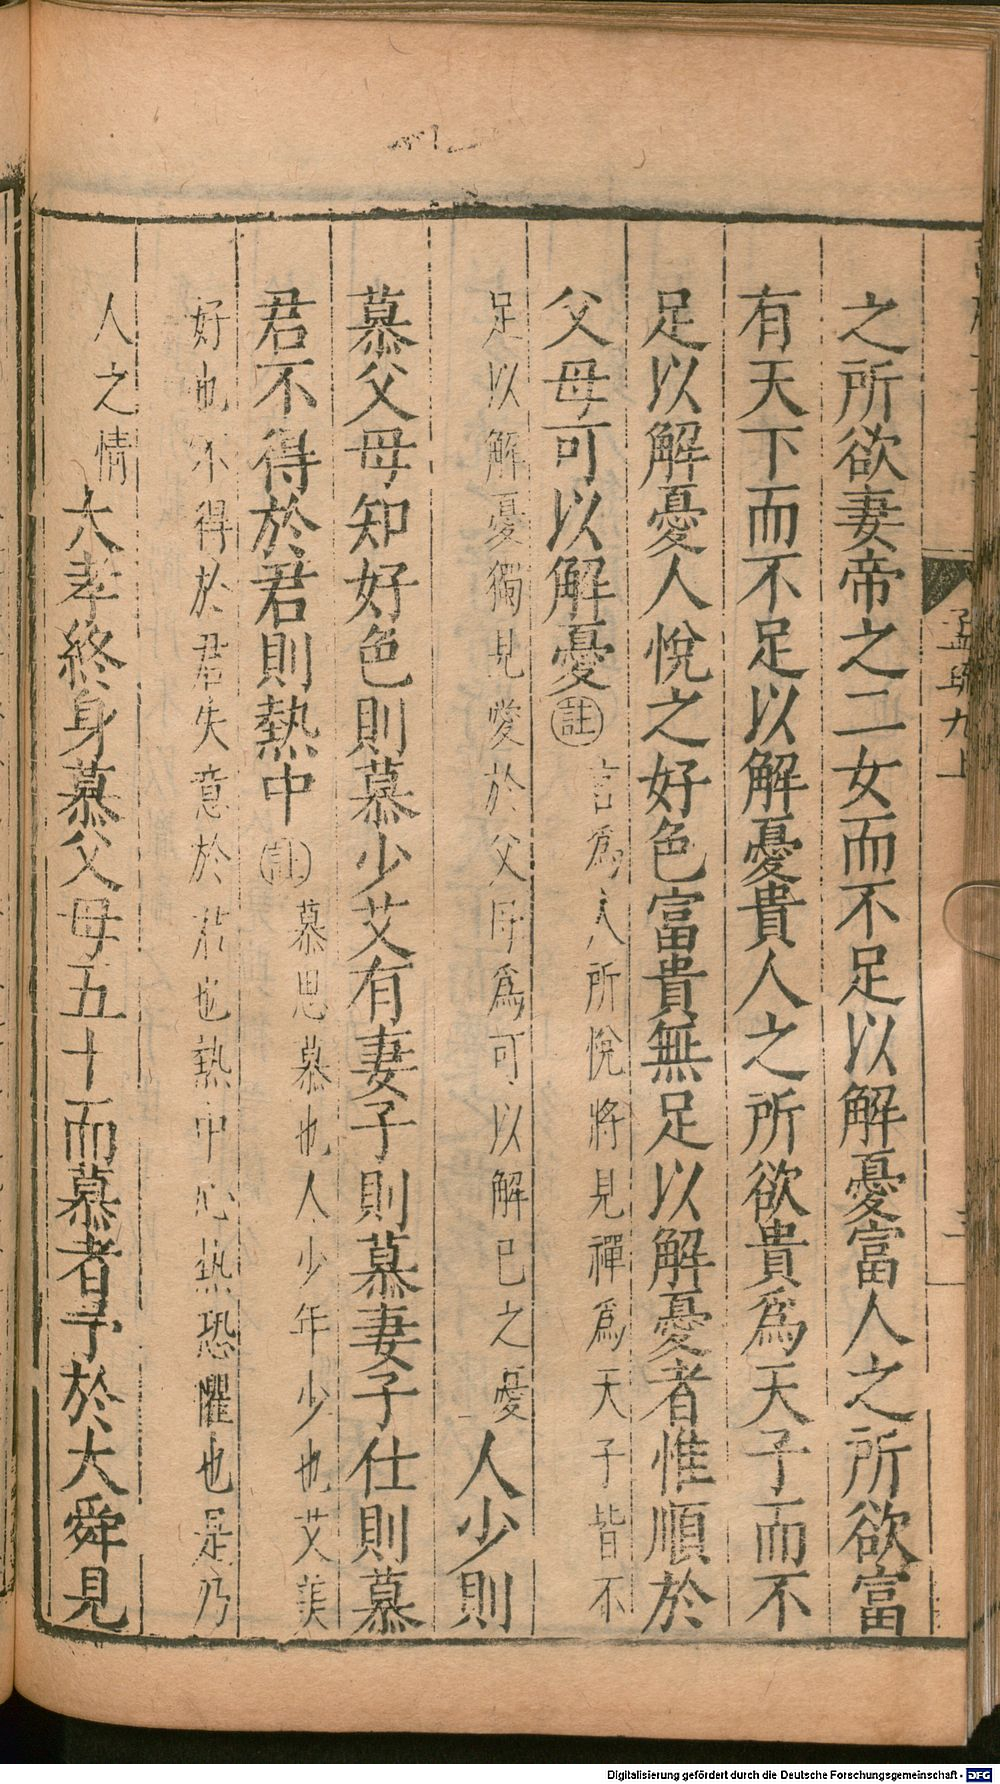 孟疏九上
之所欲妻帝之二女而不足以解憂富人之所欲富
有天下而不足以解憂貴人之所欲貴爲天子而不
足以解憂人悅之好色富貴無足以解憂者惟順於
父母可以解憂註言爲人所悅將見禪爲天子皆不
足以解憂獨見愛於父母爲可以解己之憂人少則
慕父母知好色則慕少艾有妻子則慕妻子仕則慕
君不得於君則熱中註慕思慕也人少年少也艾美
好也不得於君失意於君也熱中心熱恐懼也是乃
人之情大孝終身慕父母五十而慕者予於大舜見
Digitalisierung gefördert durch die Deutsche Forschungsgemeinschaft - DFG